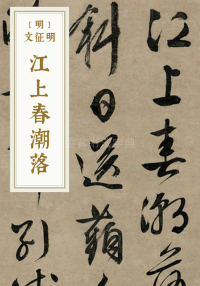 [明]
文征明
江上春潮落
江上春潮落
斜日送蘋